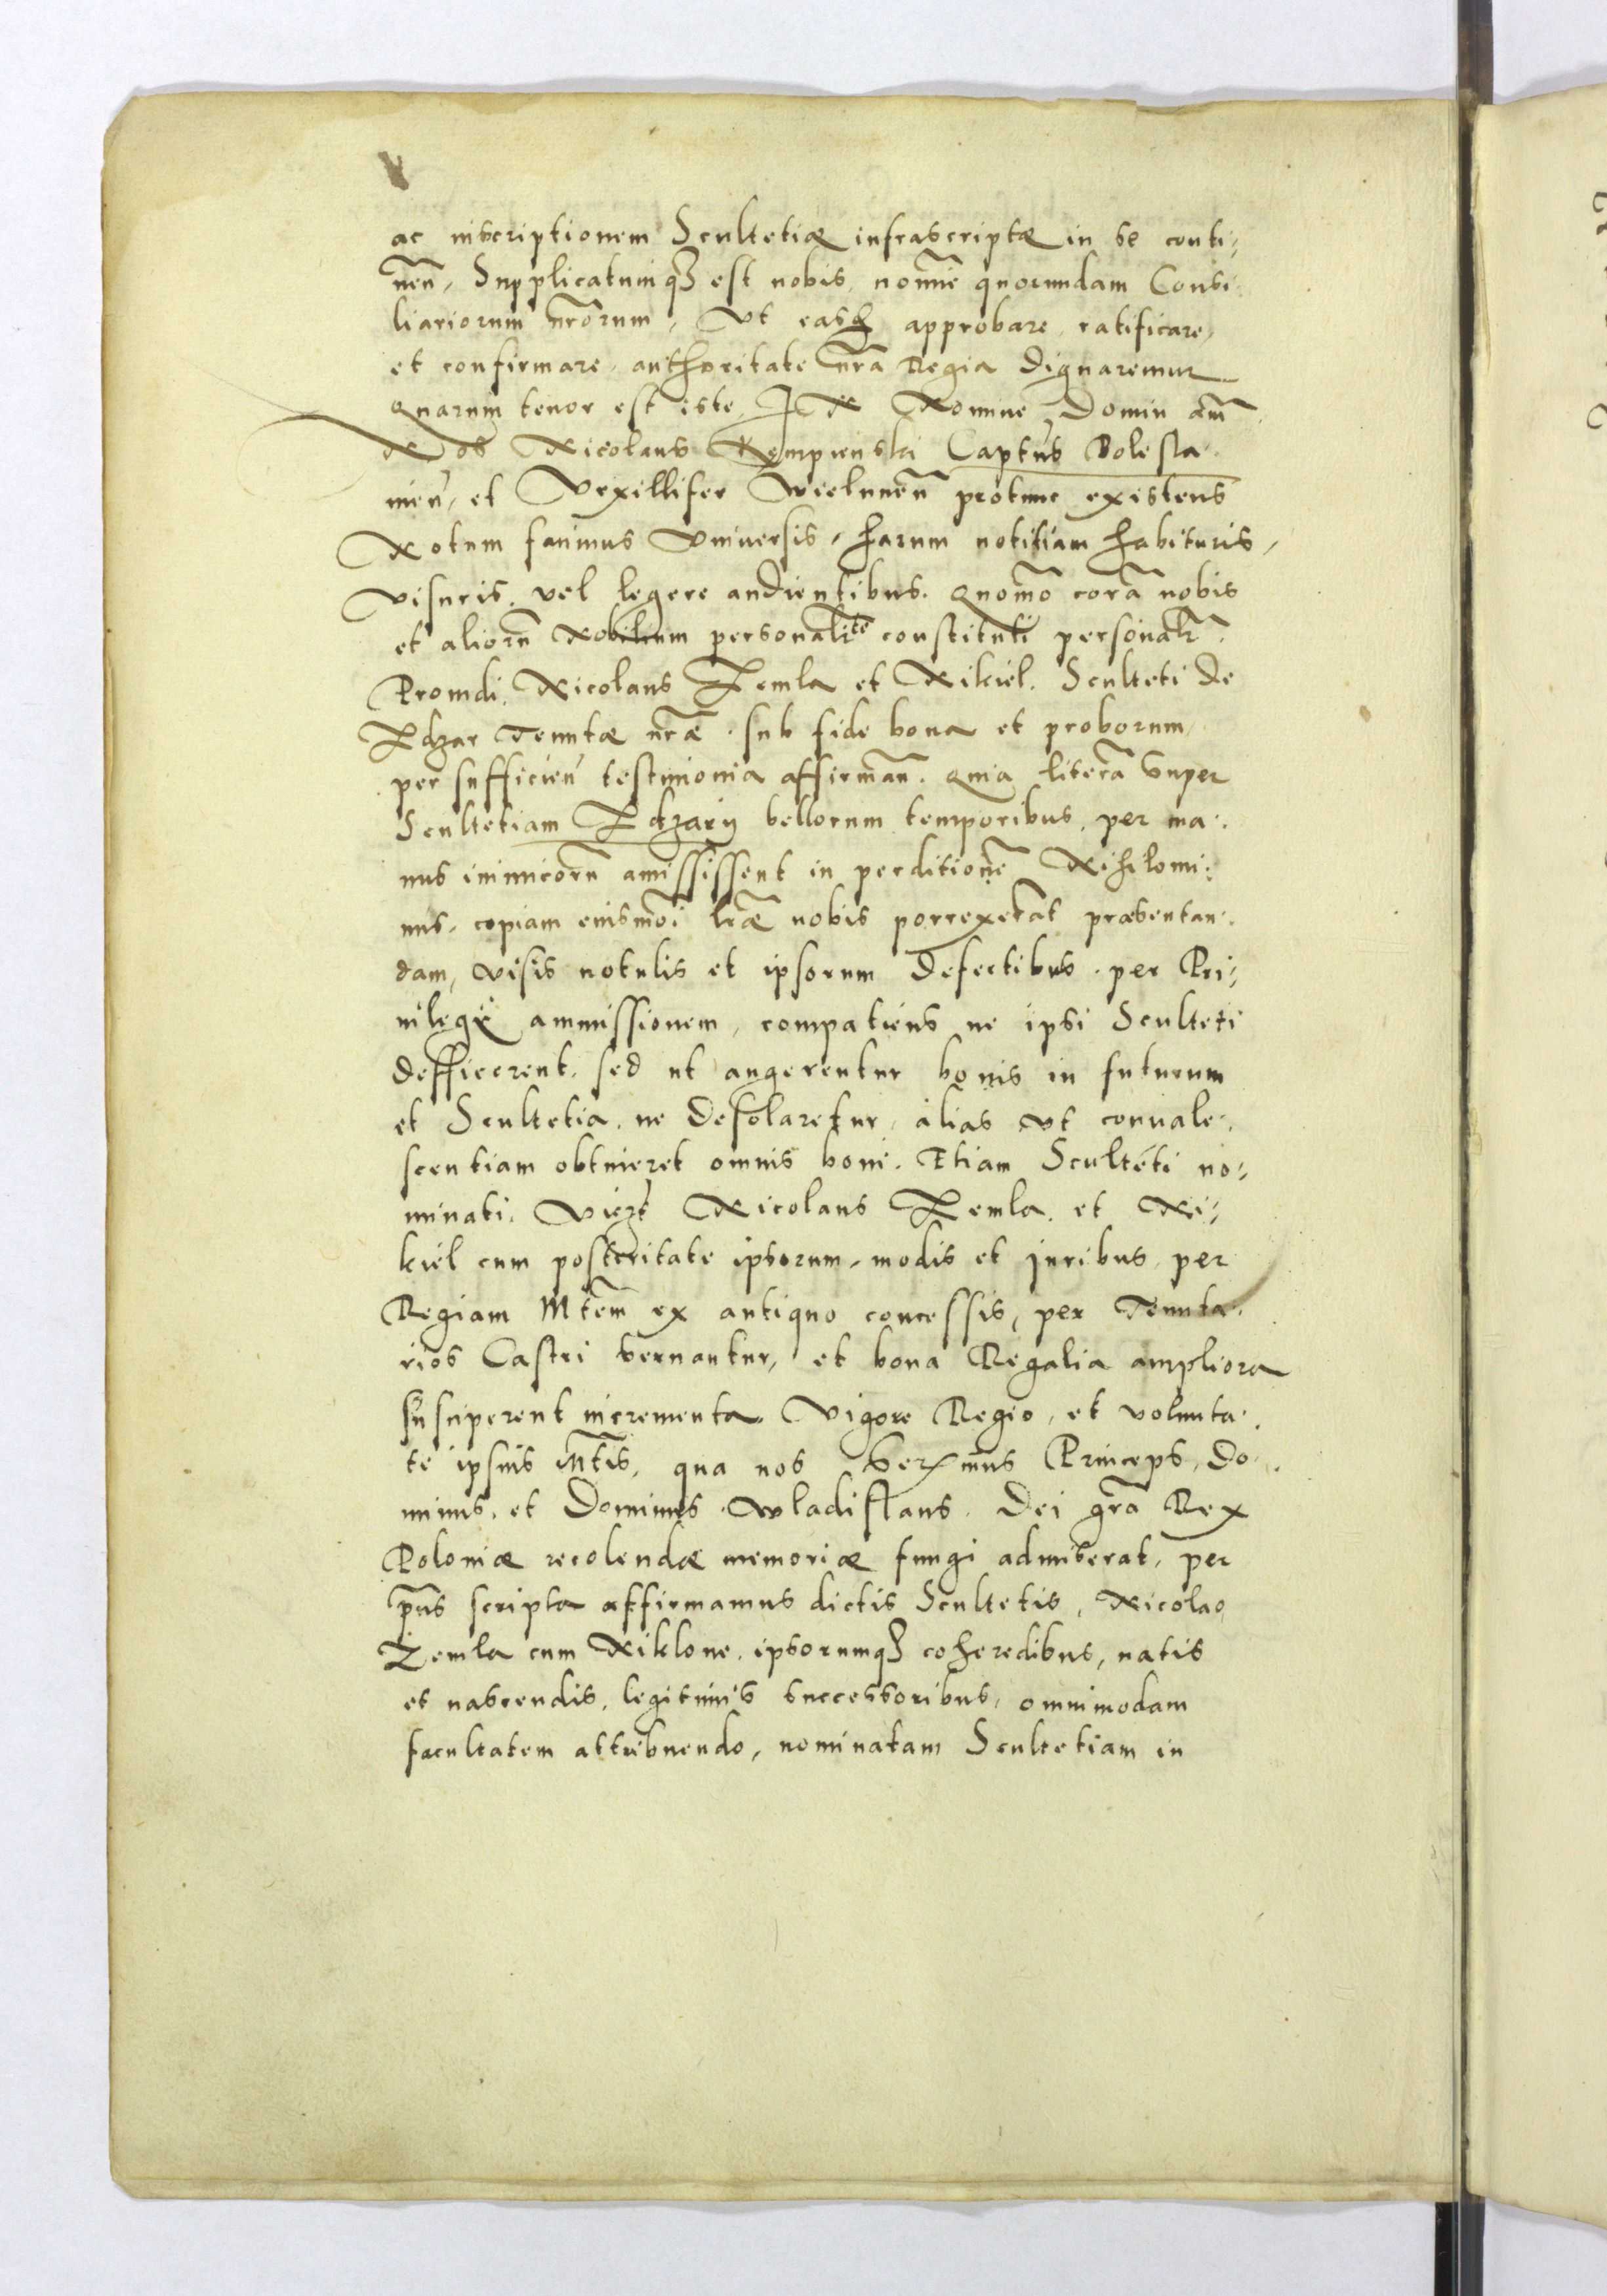 ac inscriptionem Scultetiæ infrascriptæ in se conti:
neñ, Supplicatumq3 est nobis, noīe quorundam Consi
liariorum nrōrum, Ut easd approbare, ratificare,
et confirmare, authoritate nrā Regia dignaremur
Quarum tenor est iste, IN Nomine Domini am̃
Nos Nicolaus Kempienski Captus Bolesla:
nieñ, et Vexillifer Wieluneñ protunc existens
Notum facimus Vniuersis, harum notitiam habituris,
visuris, vel legere audientibus. Quomō corā nobis
et aliorū Nobilium personalite constituti personalr.
Prouidi. Nicolaus Zemla et Nikiel. Sculteti de
Zdzar Tenutæ nræ. sub fide bona et proborum,
per sufficieñ testimonia affirmañ. Quia literā super
Scultetiam Zdzarÿ bellorum temporibus, per ma:
nus inimicorū amississent in perditionē Nihilomi:
nus, copiam euismōi lræ nobis porrexerāt præsentan:
dam, visis notulis et ipsorum defectibus. per Pri:
uilegÿ ammissionem, compatiens ne ipsi Sculteti
defficerent, sed ut augerentur bonis in futurum
et Scultetia, ne desolaretur, alias ut conuale:
scentiam obtineret omnis boni. Etiam Sculteti no:
minati, Vidzt Nicolaus Zemla, et Ni:
kiel cum posteritate ipsorum, modis et iuribus, per
Regiam Mtēm ex antiquo concessis, per Tenuta:
rios Castri seruantur, et bona Regalia ampliora
susciperent incrementa. Vigore Regio, et volunta:
te ipsius Mtis, qua nos Serx̄mus Princeps, do:
minus, et Dominus Wladislaus. Dei grā Rex
Poloniæ recolendæ memoriæ fungi admiserat, per
pñs scripta affirmamus dictis Scultetis, Nicolao,
Zemla cum Niklone, ipsorumq3 coheredibus, natis
et nascendis, legitimis successoribus, omnimodam
facultatem attribuendo, nominatam Scultetiam in